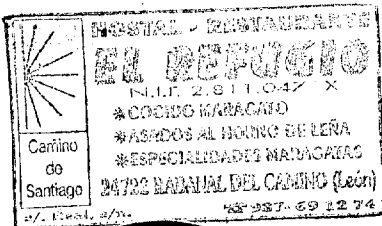 HOSTAL - RESTAURANTE
EL REFUGIO
N.I.F. 2.811.047 X
*COCIDO MARAGATO
*ASADOS AL HORNO DE LEÑA
*ESPECIALIDADES MARAGATAS
Camino
de
Santiago
24722 RABANAL DEL CAMINO (León)
c/. Real, s/n.
☎ 987 - 69 12 74